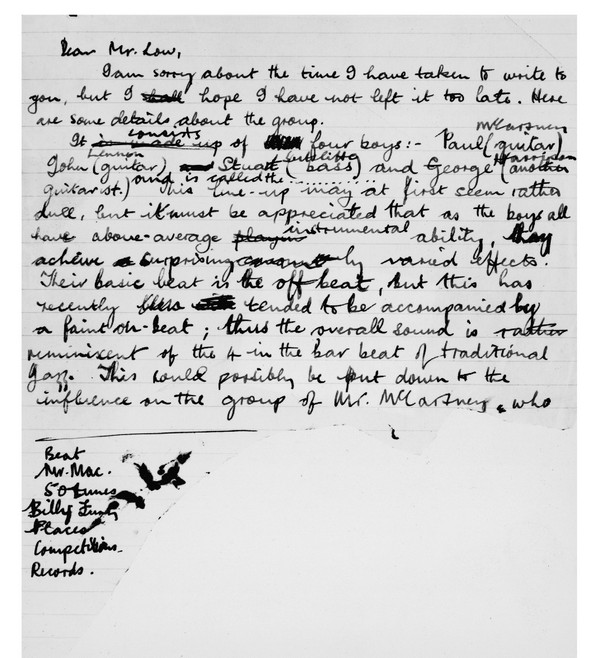 Dear Mr. Low,
I am sorry about the time I have taken to write to
you, but I shall hope I have not left it too late. Here
are some details about the group.
consists
McCartney
It is made up of four boys:- Paul (guitar)
Lennon
Sutcliffe
Harrison
John (guitar) and Stuart (bass) and George (another
and is called the ..............
guitarist.) This line-up may at first seem rather
dull, but it must be appreciated that as the boys all
instrumental
have above-average playing ability, they
achieve a surprisingly varied effects.
Their basic beat is the off beat, but this has
recently tended to be accompanied by
a faint on-beat; thus the overall sound is rather
reminiscent of the 4 in the bar beat of traditional
jazz. This could possibly be put down to the
influence on the group of Mr. McCartney, who
Beat
Mr. Mac.
50 tunes
Billy Fury
Places
Competitions.
Records.